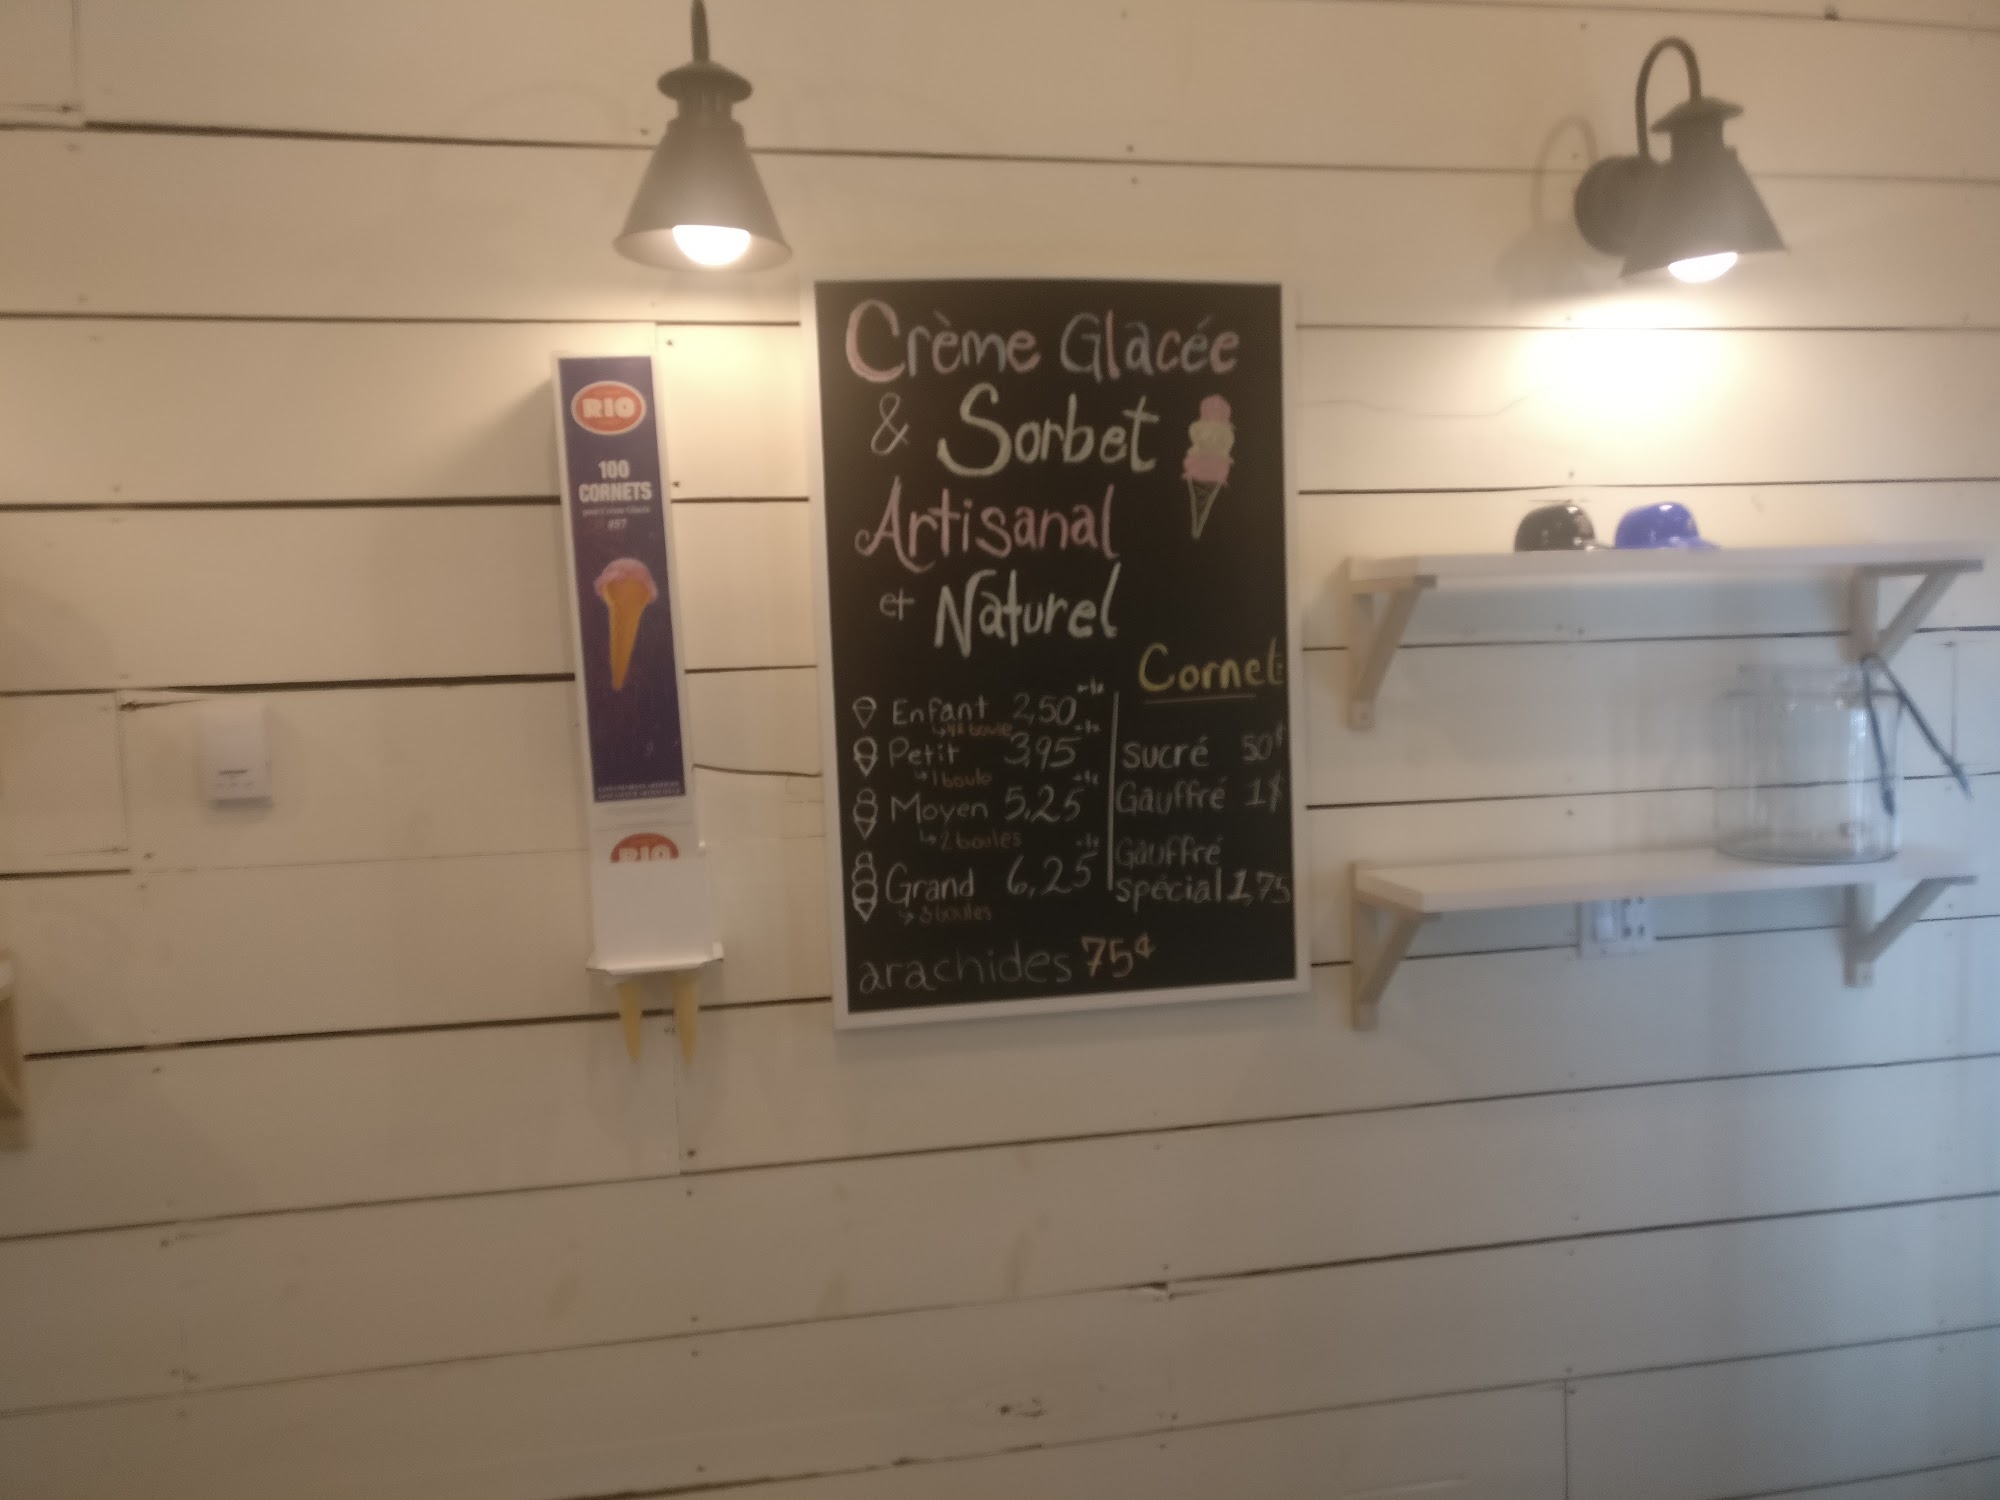 RIO
100
CORNETS
pour Crème Glacée
#57
RIO
Crème Glacée
& Sorbet
Artisanal
et Naturel
Enfant 2,50
Petit 3,95
↳ 1 boule
Moyen 5,25
↳ 2 boules
Grand 6,25
↳ 3 boules
arachides 75¢
Cornet
sucré 50¢
Gauffré 1$
Gauffré
spécial 1,75